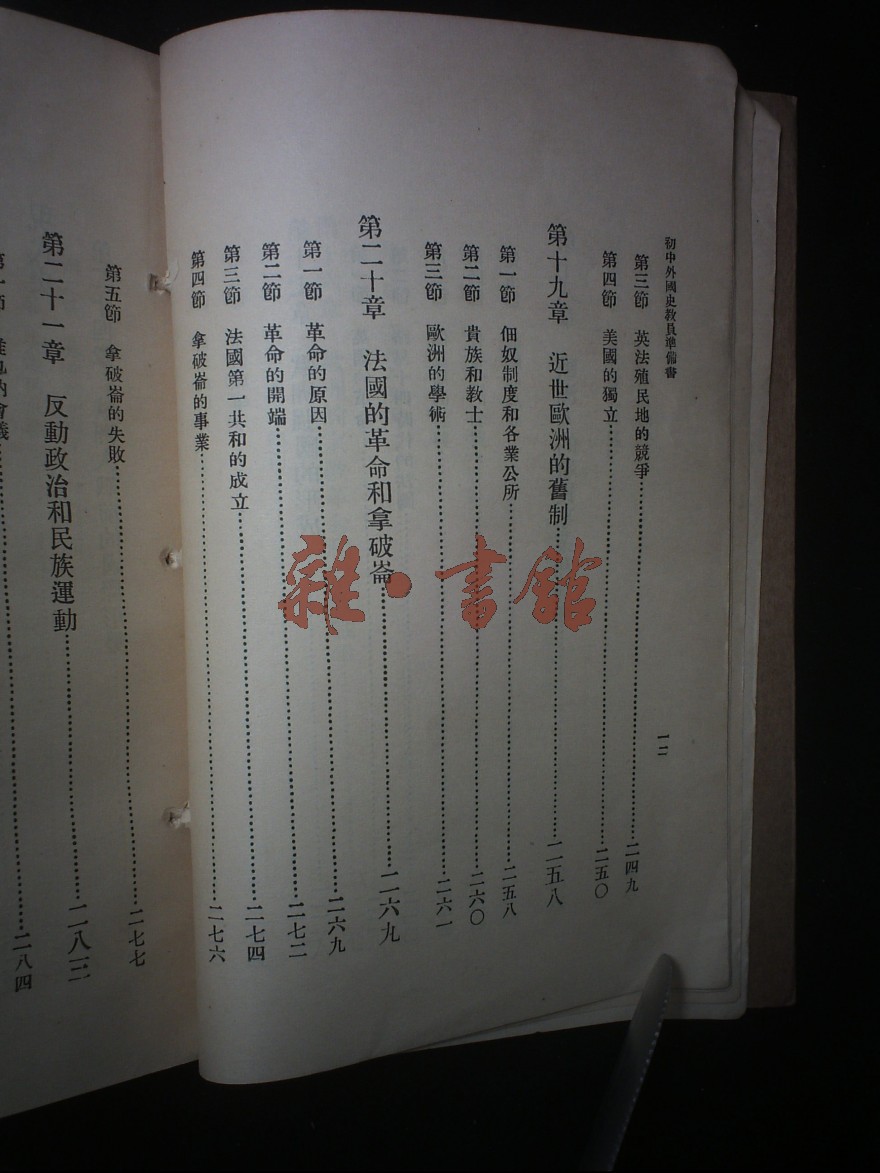 初中外國史教員準備書
一二
第三節 英法殖民地的競爭……二四九
第四節 美國的獨立……二五〇
第十九章 近世歐洲的舊制……二五八
第一節 佃奴制度和各業公所……二五八
第二節 貴族和教士……二六〇
第三節 歐洲的學術……二六一
第二十章 法國的革命和拿破崙……二六九
第一節 革命的原因……二六九
第二節 革命的開端……二七二
第三節 法國第一共和的成立……二七四
第四節 拿破崙的事業……二七六
第五節 拿破崙的失敗……二七七
第二十一章 反動政治和民族運動……二八三
第一節 維也納會議……二八四
雜·書館